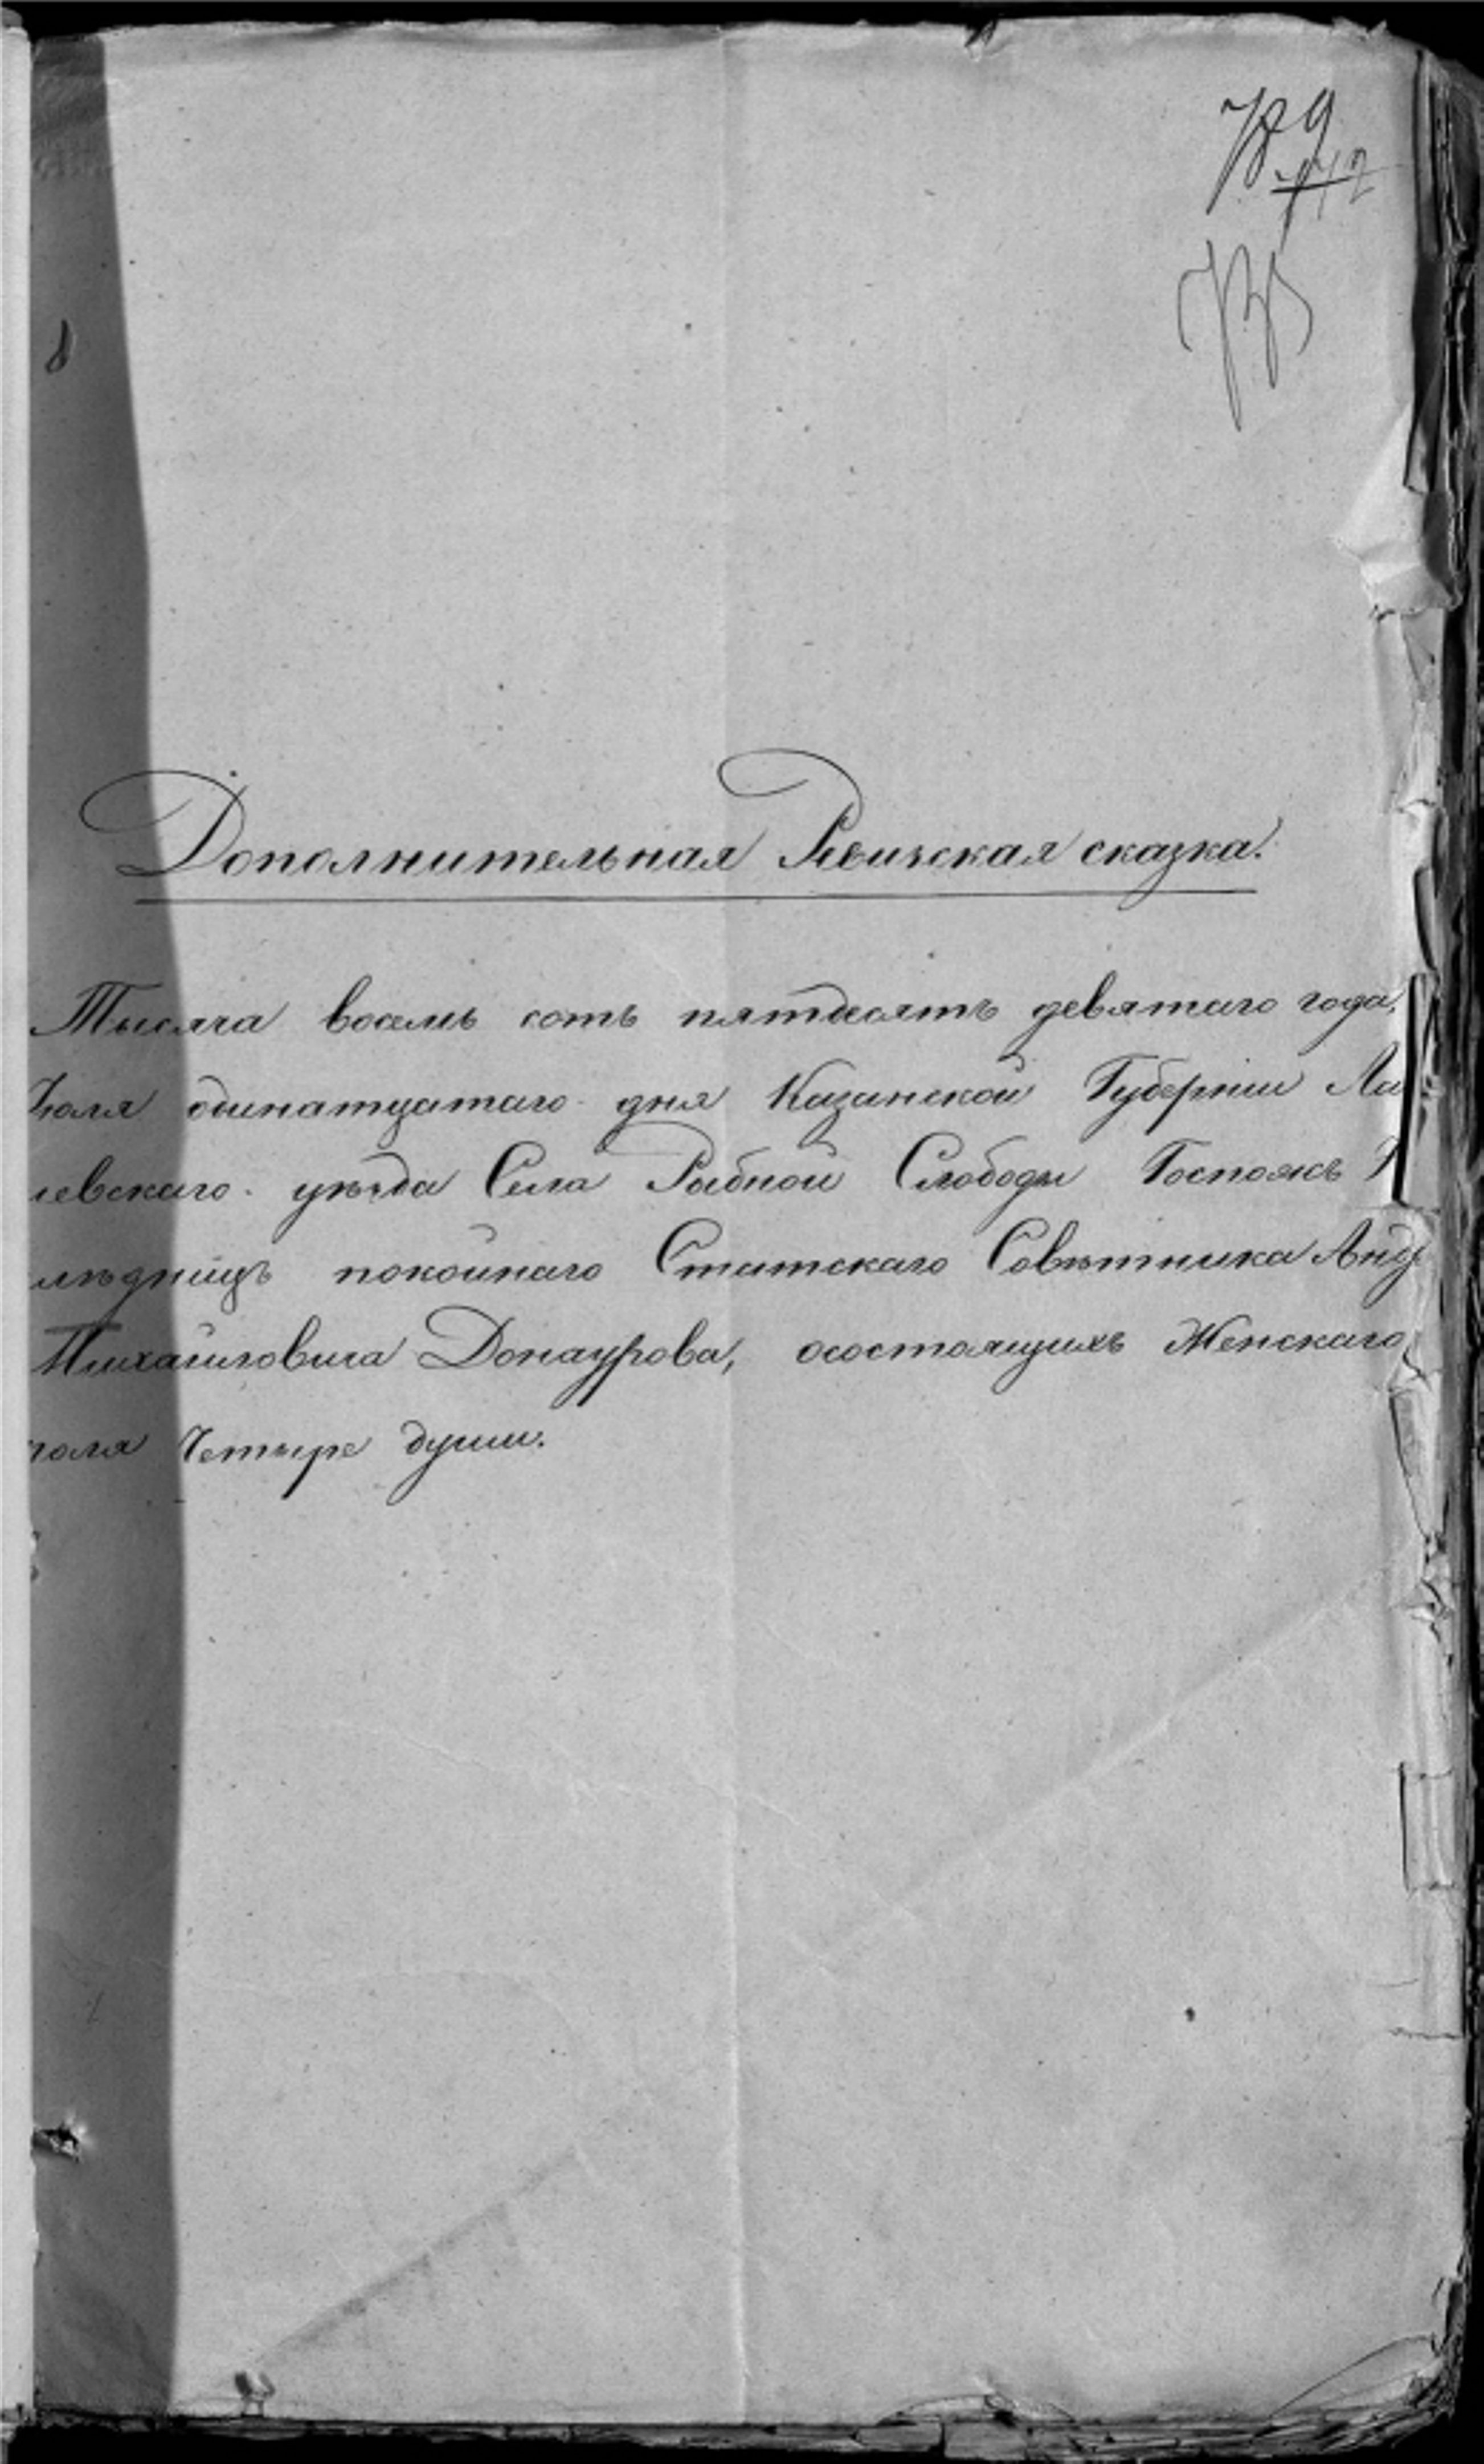 789
742
Дополнительная Ревизская сказка.
Тысяча восемь сотъ пятдесятъ девятаго года,
Іюля одинатцатаго дня Казанской Губерніи Ла
шевскаго уѣзда Села Рыбной Слободы Госпожъ Н
слѣдницъ покойнаго Статскаго Совѣтника Анд
Михайловича Донаурова, осостоящихъ Женскаго
пола Четыре души.